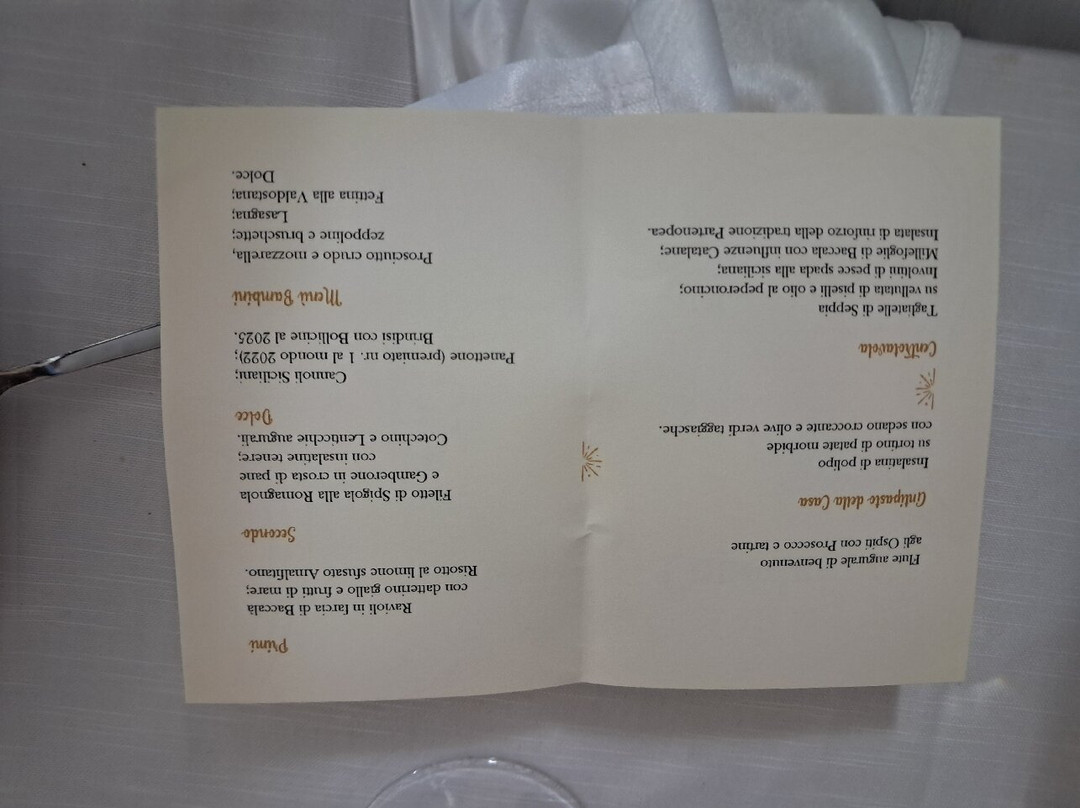 Flute augurale di benvenuto
agli Ospiti con Prosecco e tartine
Antipasto della Casa
Insalatina di polipo
su tortino di patate morbide
con sedano croccante e olive verdi taggiasche.
CentRotavola
Tagliatelle di Seppia
su vellutata di piselli e olio al peperoncino;
Involtini di pesce spada alla siciliana;
Millefoglie di Baccala con influenze Catalane;
Insalata di rinforzo della tradizione Partenopea.
Primi
Ravioli in farcia di Baccalà
con datterino giallo e frutti di mare;
Risotto al limone sfusato Amalfitano.
Secondo
Filetto di Spigola alla Romagnola
e Gamberone in crosta di pane
con insalatine tenere;
Cotechino e Lenticchie augurali.
Dolce
Cannoli Siciliani;
Panettone (premiato nr. 1 al mondo 2022);
Brindisi con Bollicine al 2025.
Menù Bambini
Prosciutto crudo e mozzarella,
zeppoline e bruschette;
Lasagna;
Fettina alla Valdostana;
Dolce.